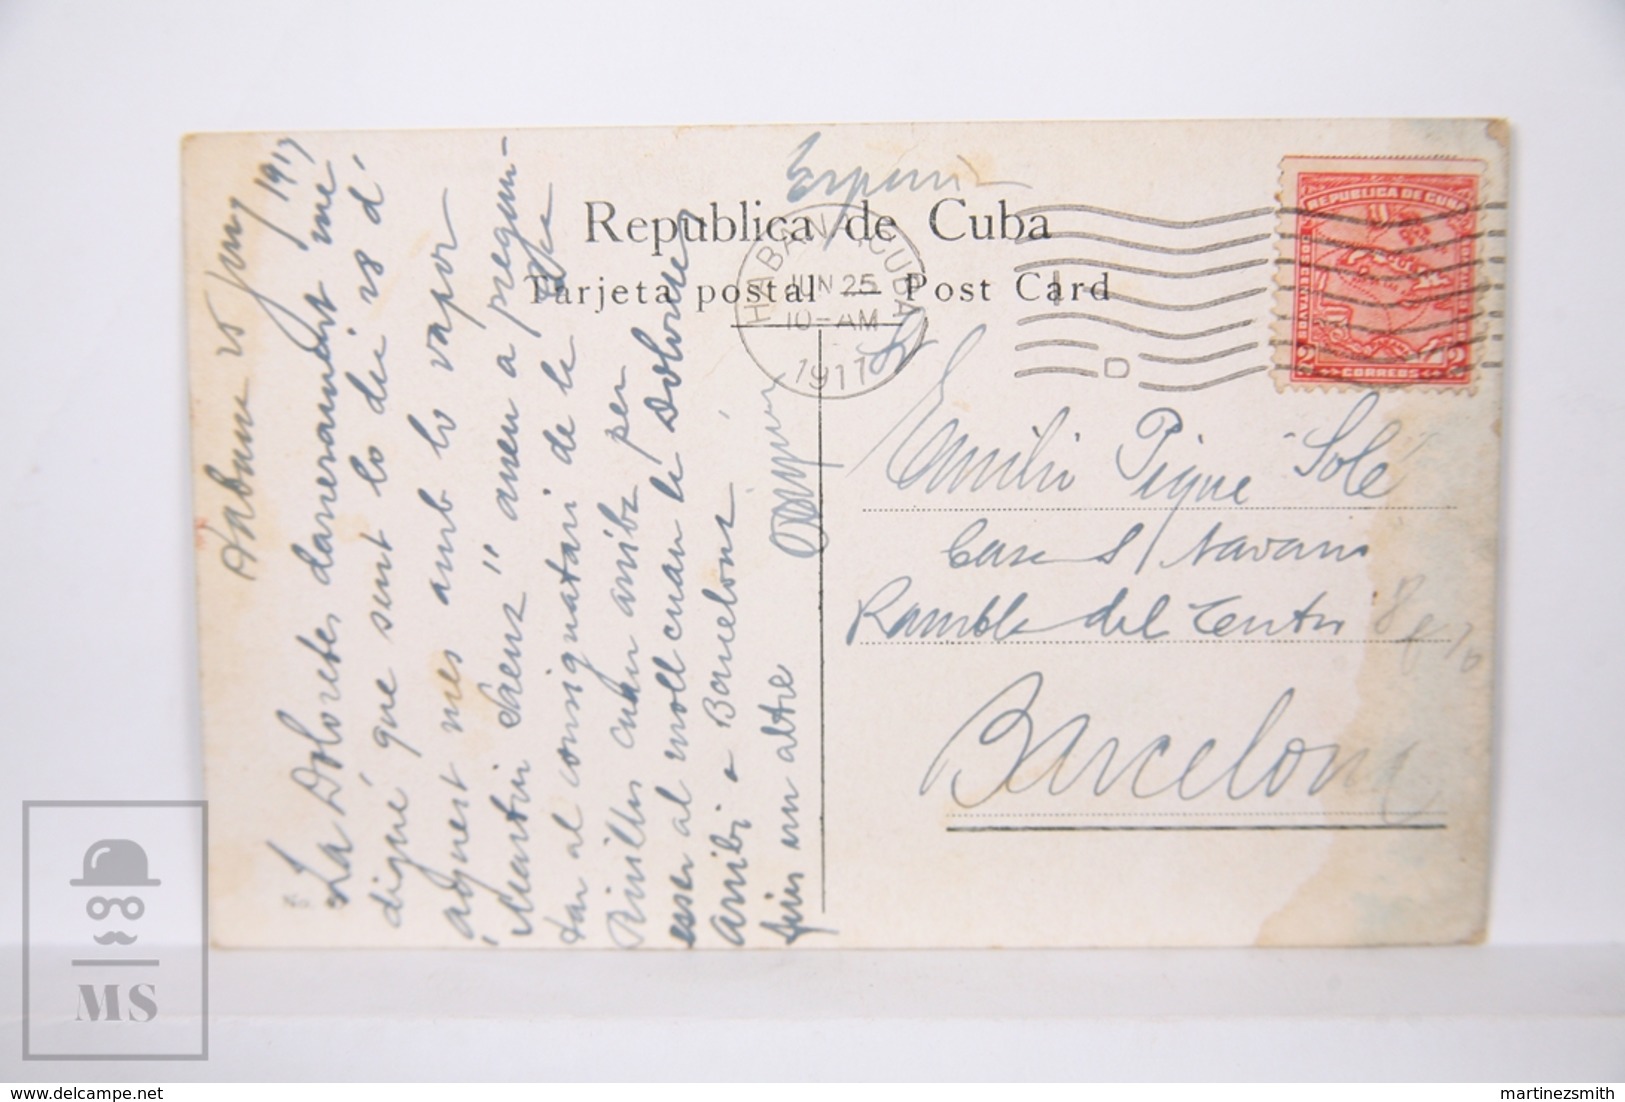 Habana 25 Juny 1917
La Dolores darrerament me
digué que sent lo dia 28 d'
aquest mes amb lo vapor
"Martin Saenz" aneu a pregun-
tar al consignatari de la
Pinillos cuan arriba per
esser al moll cuan la Dolores
arribi a Barcelona
fins un altre
España
Republica de Cuba
Tarjeta postal — Post Card
HABANA, CUBA
JUN 25
10-AM
1917
D
REPUBLICA DE CUBA
2 2
CORREOS
Sr
Emili Pique Solé
Casa S Navarro
Rambla del Centro 8 y 10
Barcelona
MS
martinezsmith
delcampe.net